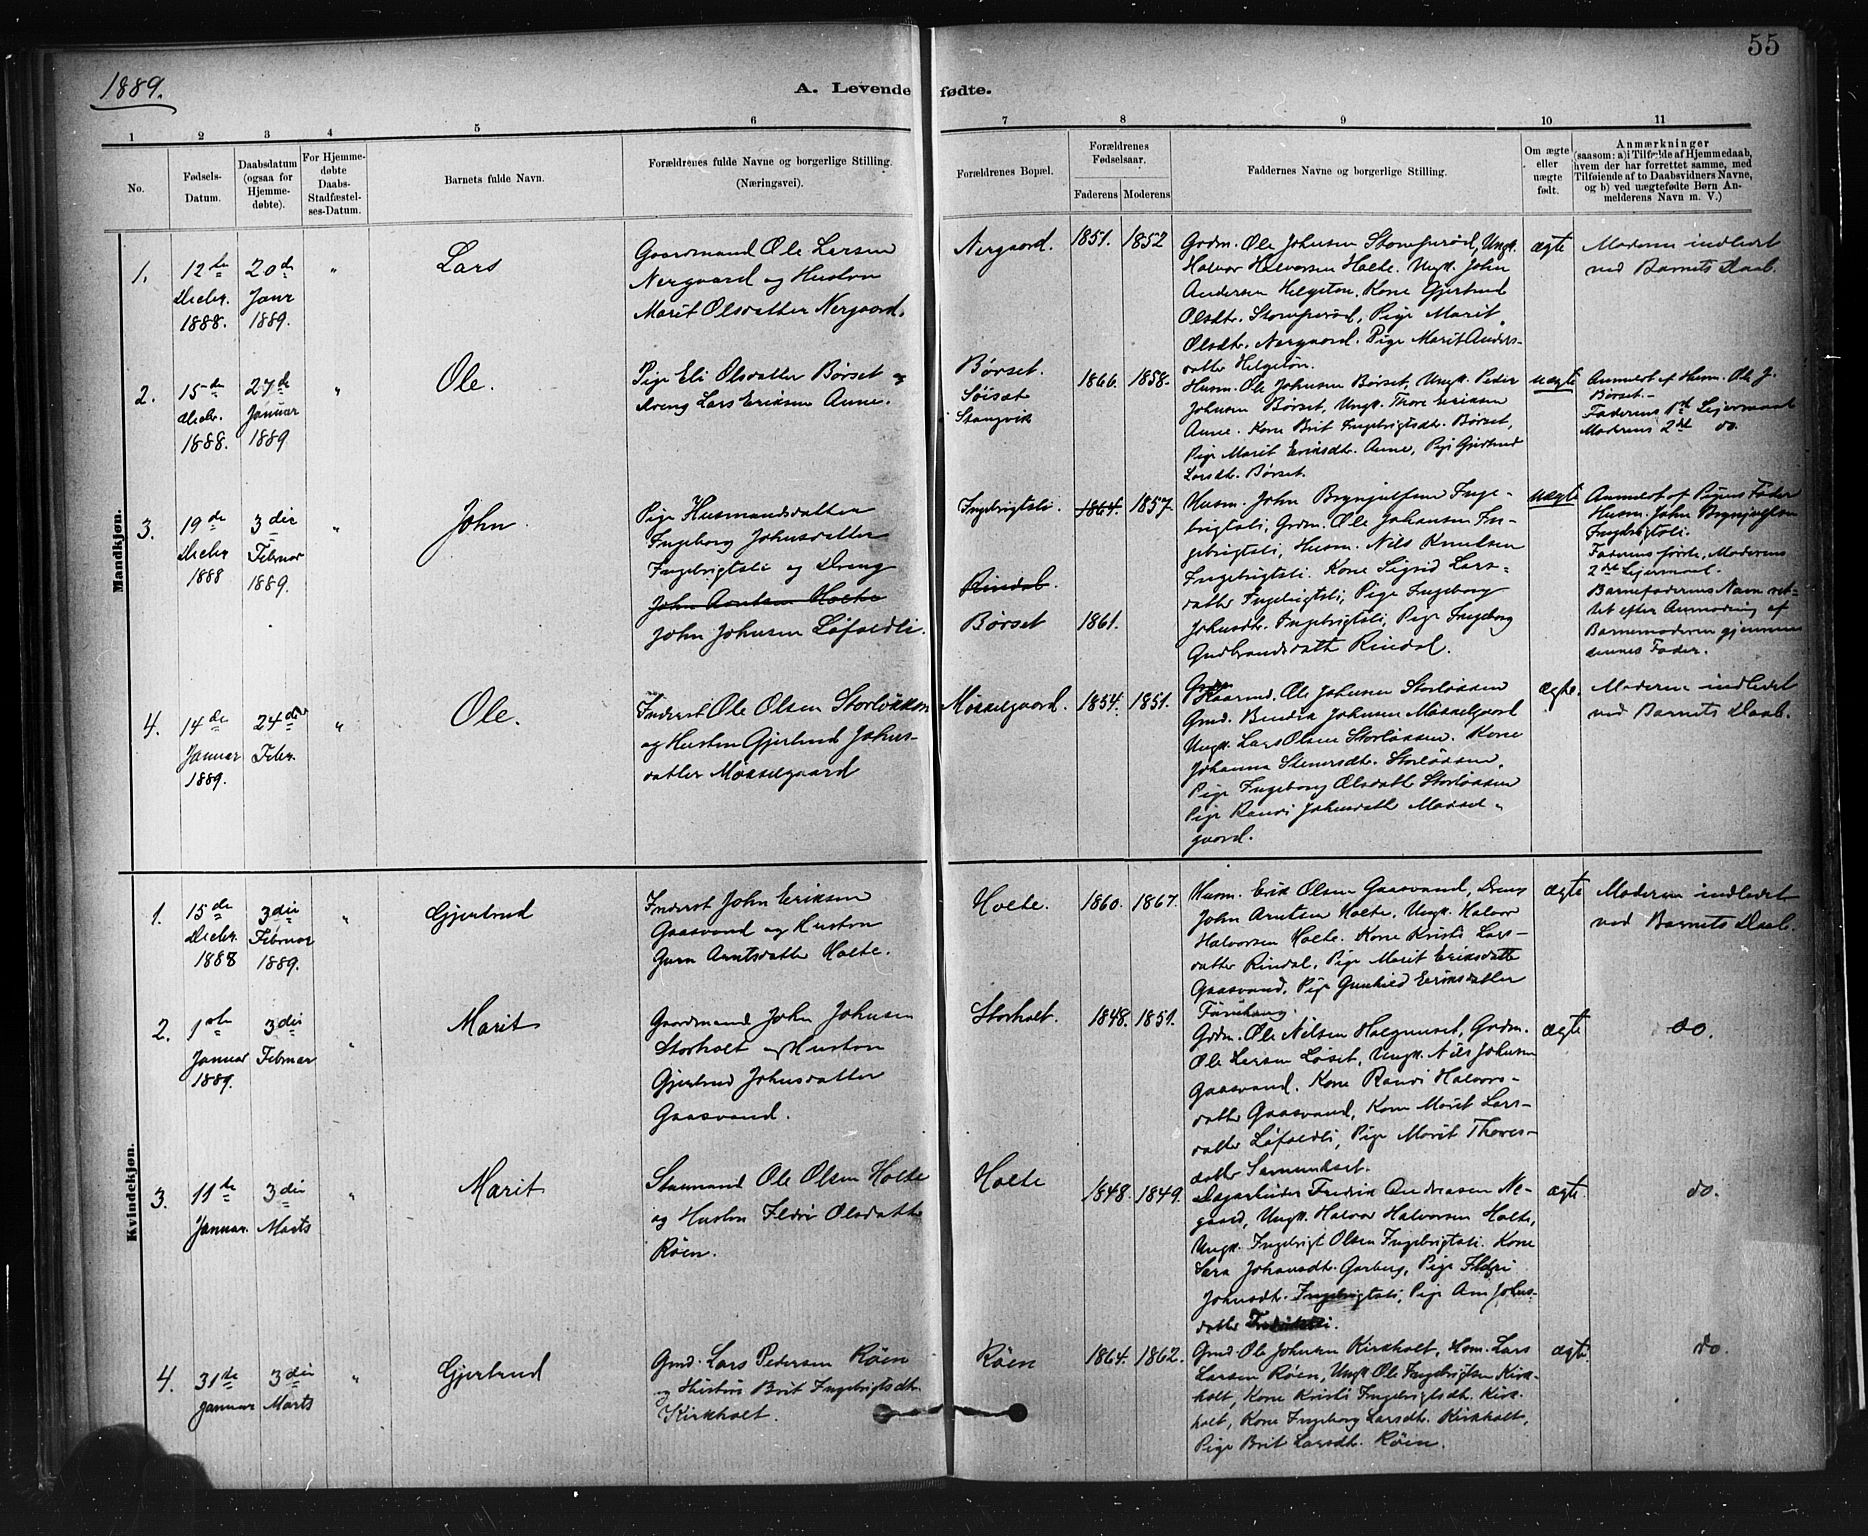 1889.
55
A. Levende fødte.
1 2 3 4 5 6 7 8 9 10 11
No.
Fødsels-
Datum.
Daabsdatum
(ogsaa for
Hjemme-
døbte).
For Hjemme-
døbte
Daabs-
Stadfæstel-
ses-Datum.
Barnets fulde Navn.
Forældrenes fulde Navne og borgerlige Stilling.
(Næringsvei).
Forældrenes Bopæl.
Forældrenes
Fødselsaar.
Faderens Moderens
Faddernes Navne og borgerlige Stilling.
Om ægte
eller
uægte
født.
Anmærkninger
(saasom: a) i Tilfælde af Hjemmedaab,
hvem der har forrettet samme, med
Tilføiende af to Daabsvidners Navne,
og b) ved uægtefødte Børn An-
melderens Navn m. V.)
Mandkjøn.
1.
12te
Decbr.
1888.
20de
Janr
1889.
"
Lars
Gaardmand Ole Larsen
Nergaard og Hustru
Marit Olsdatter Nergaard.
Nergaard.
1851. 1852
Grdm. Ole Johnsen Stomprød, Ungk.
Halvor Halvorsen Holte. Ungk. John
Andersen Helgetøn, Kone Gjertrud
Olsdtr. Stomprød, Pige Marit
Olsdtr. Nergaard. Pige Marit Anders-
datter Helgetøn.
ægte
Moderen indledet
ved Barnets Daab.
2.
15de
Decbr.
1888.
27de
Januar
1889
"
Ole.
Pige Eli Olsdatter Børset og
Dreng Lars Eriksen Aune.
Børset.
Søisæt
Stangvik
1866. 1858.
Husm. Ole Johnsen Børset, Ungk. Peder
Johnsen Børset, Ungk. Thore Eriksen
Aune. Kone Brit Ingebrigtsdtr. Børset,
Pige Marit Eriksdtr. Aune, Pige Gjertrud
Larsdtr. Børset.
uægte
Anmeldt af Husm. Ole J.
Børset.-
Faderens 1st Leiermaal
Moderens 2det do.
3.
19de
Decbr
1888
3die
Februar
1889.
"
John
Pige Husmandsdatter
Ingeborg Johnsdatter
Ingebrigtsli og Dreng
John Arntsen Holte
John Johnsen Løfaldli.
Ingebrigtsli.
Rindal.
Børset
1864. 1857.
1861.
Husm. John Brynjulfsen Inge-
brigtsli, Grdm. Ole Johansen In-
gebrigtsli, Husm. Nils Knudsen
Ingebrigtsli. Kone Sigrid Lars-
datter Ingebrigtsli, Pige Ingeborg
Johnsdtr. Ingebrigtsli, Pige Ingeborg
Gudbrandsdatt Rindal.
uægte
Anmeldt af Pigens Fader
Husm. John Brynjulfsen
Ingebrigtsli.
Faderens første, Moderens
2det Leiermaal.
Barnefaderens Navn ret-
tet efter Anmodning af
Barnemoderen gjennem
dennes Fader.
4.
14de
Januar
1889.
24de
Febr.
"
Ole.
Inderst Ole Olsen Storløkken
og Hustru Gjertrud Johns-
datter Mosselgaard
Mosselgaard.
1854. 1851.
Ole Johnsen Storløkken
Gmd. Bendix Johnsen Mosselgaard
Ungk. Lars Olsen Storløkken. Kone
Johanna Stenersdtr. Storløkken,
Pige Ingeborg Olsdatt. Storløkken
Pige Randi Johnsdatt. Mossel-
gaard.
ægte.
Moderen indledet
ved Barnets Daab.
Kvindekjøn.
1.
15de
Decbr.
1888
3die
Februar
1889.
"
Gjertrud
Inderst John Eriksen
Gaasvand og Hustru
Guru Arntsdatter Holte.
Holte.
1860. 1867.
Husm. Erik Olsen Gaasvand, Dreng
John Arntsen Holte, Ungk. Halvor
Halvorsen Holte. Kone Kristi Lars-
datter Rindal, Pige Marit Eriksdatte
Gaasvand, Pige Gunhild Eriksdatter
ægte
Moderen indledet
ved Barnets Daab.
2.
1ste
Januar
1889.
3die
Februar
"
Marit
Gaardmand John Johnsen
Storholt og Hustru
Gjertrud Johnsdatter
Gaasvand.
Storholt.
1848. 1851.
Grdm. Ole Nilsen Halgunset, Grdm.
Ole Larsen Løset, Ungk. Nils Johnsen
Gaasvand. Kone Randi Halvors-
datter Gaasvand, Kone Marit Lars-
datter Løfaldli, Pige Marit Thores-
datter
ægte
do.
3.
11te
Januar.
3die
Marts
"
Marit
Ole Olsen Holte
og Hustru Ildri Olsdatte
Røen.
Holte
1848. 1849.
Dagarbeider Fredrik Andreasen Ne-
gaard, Ungk. Halvor Halvorsen Holte,
Ungk. Ingebrigt Olsen Ingebrigtsli. Kone
Sara Johansdtr. Garberg, Pige Ildri
Johnsdtr. Ingebrigtsli, Pige Ane Johns-
datter
ægte.
do.
4.
31te
Januar
3die
Marts
"
Gjertrud
Gmd. Lars Pedersen Røen
og Hustru Brit Ingebrigtsdtr.
Kirkholt.
Røen
1864. 1862.
Gmd. Ole Johnsen Kirkholt, Hsm. Lars
Larsen Røen, Ungk Ole Ingebrigtsen Kirk-
holt, Kone Kristi Ingebrigtsdt. Kirk-
holt, Kone Ingeborg Larsdt. Kirkholt,
Pige Brit Larsdt. Røen.
ægte.
do.